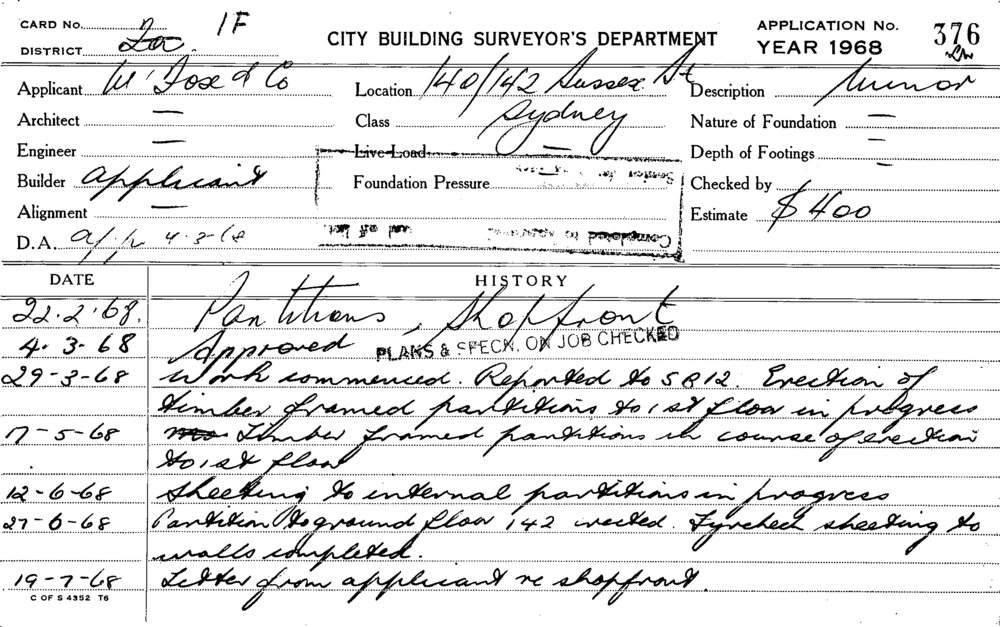 CARD No. 2a 1F
DISTRICT
CITY BUILDING SURVEYOR'S DEPARTMENT
APPLICATION No. 376
YEAR 1968
Applicant & Co
Location 140/142 Sussex St
Description Minor
Architect —
Class Sydney
Nature of Foundation —
Engineer —
Live Load —
Depth of Footings —
Builder Applicant
Foundation Pressure
Checked by
Alignment —
Estimate $400
D.A. 4-3-68
DATE HISTORY
22.2.68. Partitions, Shopfront
4.3.68 Approved PLANS & SPECN. ON JOB CHECKED
29-3-68 Work commenced. Reported to SB12. Erection of
timber framed partitions to 1st floor in progress
17-5-68 Timber framed partitions in course of erection
to 1st floor
12-6-68 Sheeting to internal partitions in progress
27-6-68 Partition to ground floor 142 erected. Fyrchek sheeting to
walls completed.
19-7-68 Letter from applicant re shopfront.
C OF S 4352 T6